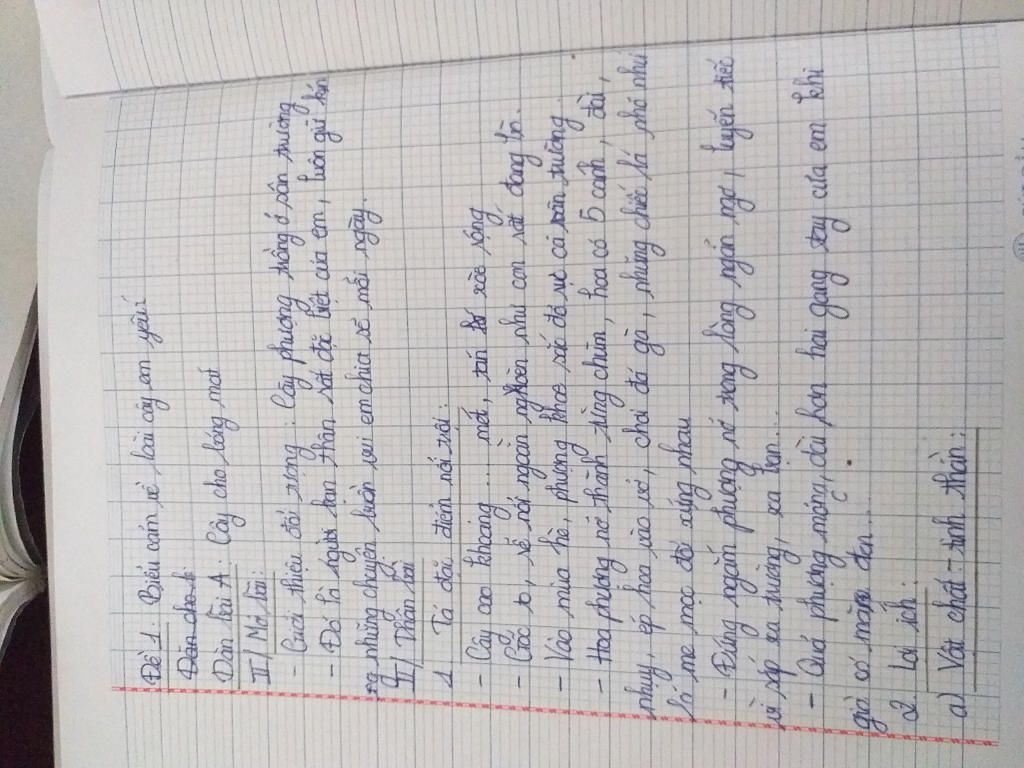 Đề 1: Biểu cảm về loài cây em yêu
Dàn cho b
Dàn bài A: Cây cho bóng mát
I/ Mở bài:
- Giới thiệu đối tượng: Cây phượng trồng ở sân trường
- Đó là người bạn thân rất đặc biệt của em, luôn giữ kín
những chuyện buồn vui em chia sẻ mỗi ngày.
II/ Thân bài
1. Tả đặc điểm nổi trội:
- Cây cao khoảng ... mét, tán xòe rộng
- Gốc to, rễ nổi ngoằn nghoèn như con rắt đang bò.
- Vào mùa hè, phượng khoe sắc đỏ rực cả sân trường.
- Hoa phượng nở thành từng chùm, hoa có 5 cánh, đài,
nhụy, ép hoa vào vở, chơi đá gà, những chiếc lá nhỏ như
lá me mọc đối xứng nhau
- Đứng ngắm phượng nở trong lòng ngẩn ngơ, luyến tiếc
vì sắp xa trường, xa bạn...
- Quả phượng mỏng, dài hơn hai gang tay của em khi
già có màu đen...
2. Lợi ích:
a) Vật chất - tinh thần: